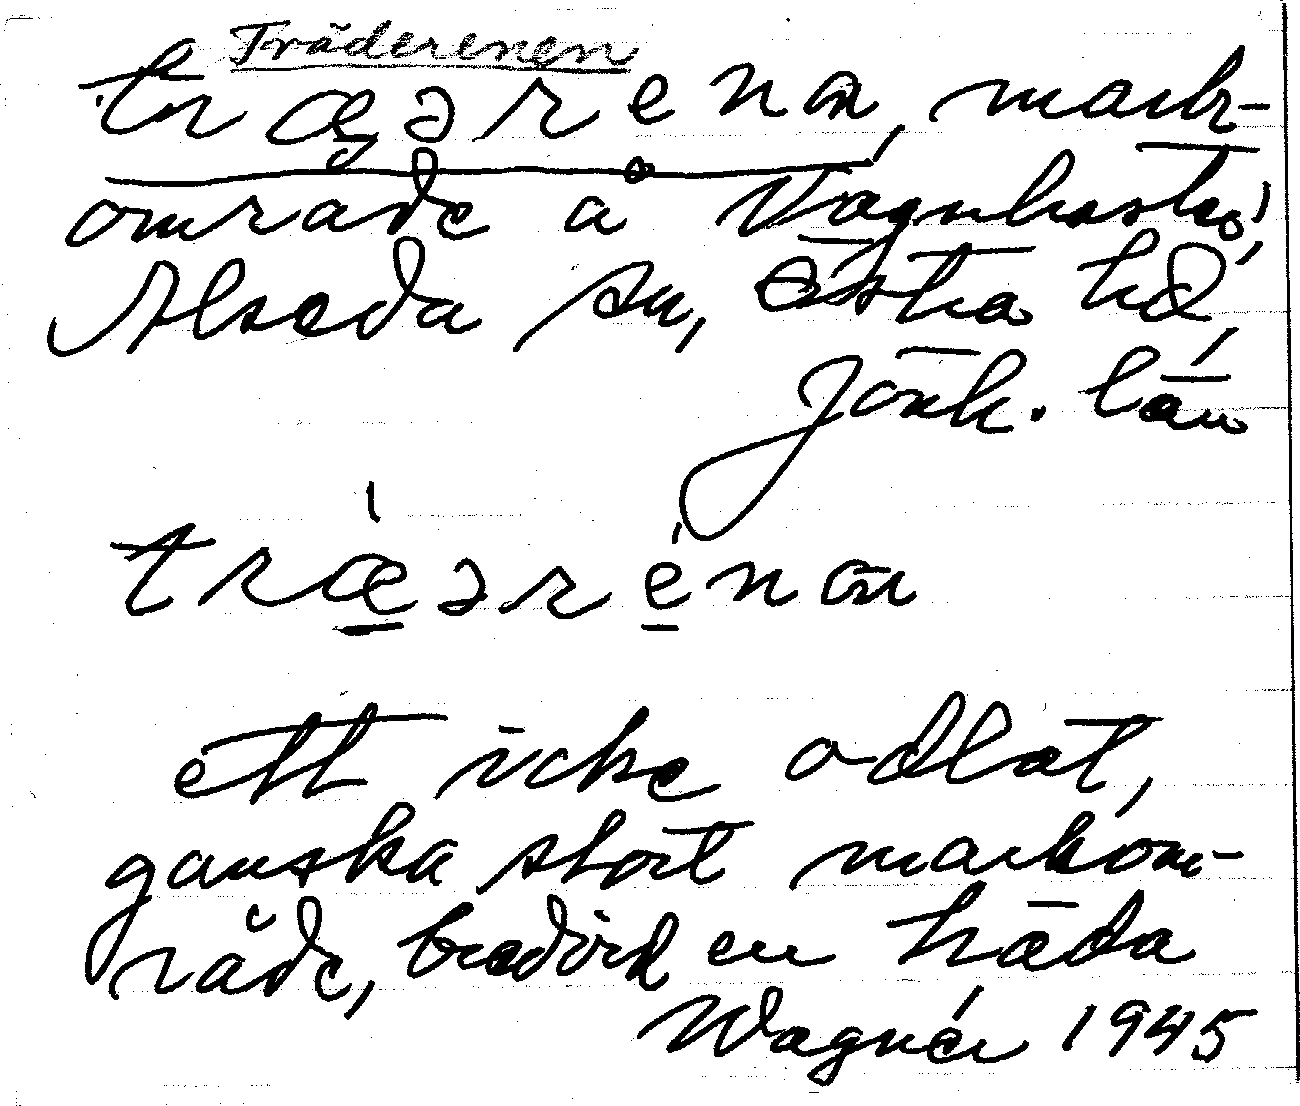 Träderenen
træ̨ərenan, mark-
område å Vagnhester,
Alseda sn, Östra hd,
Jönk. län
træərenan
ett icke odlat,
ganska stort markom-
råde, bredvid en träda
Wagnér 1945